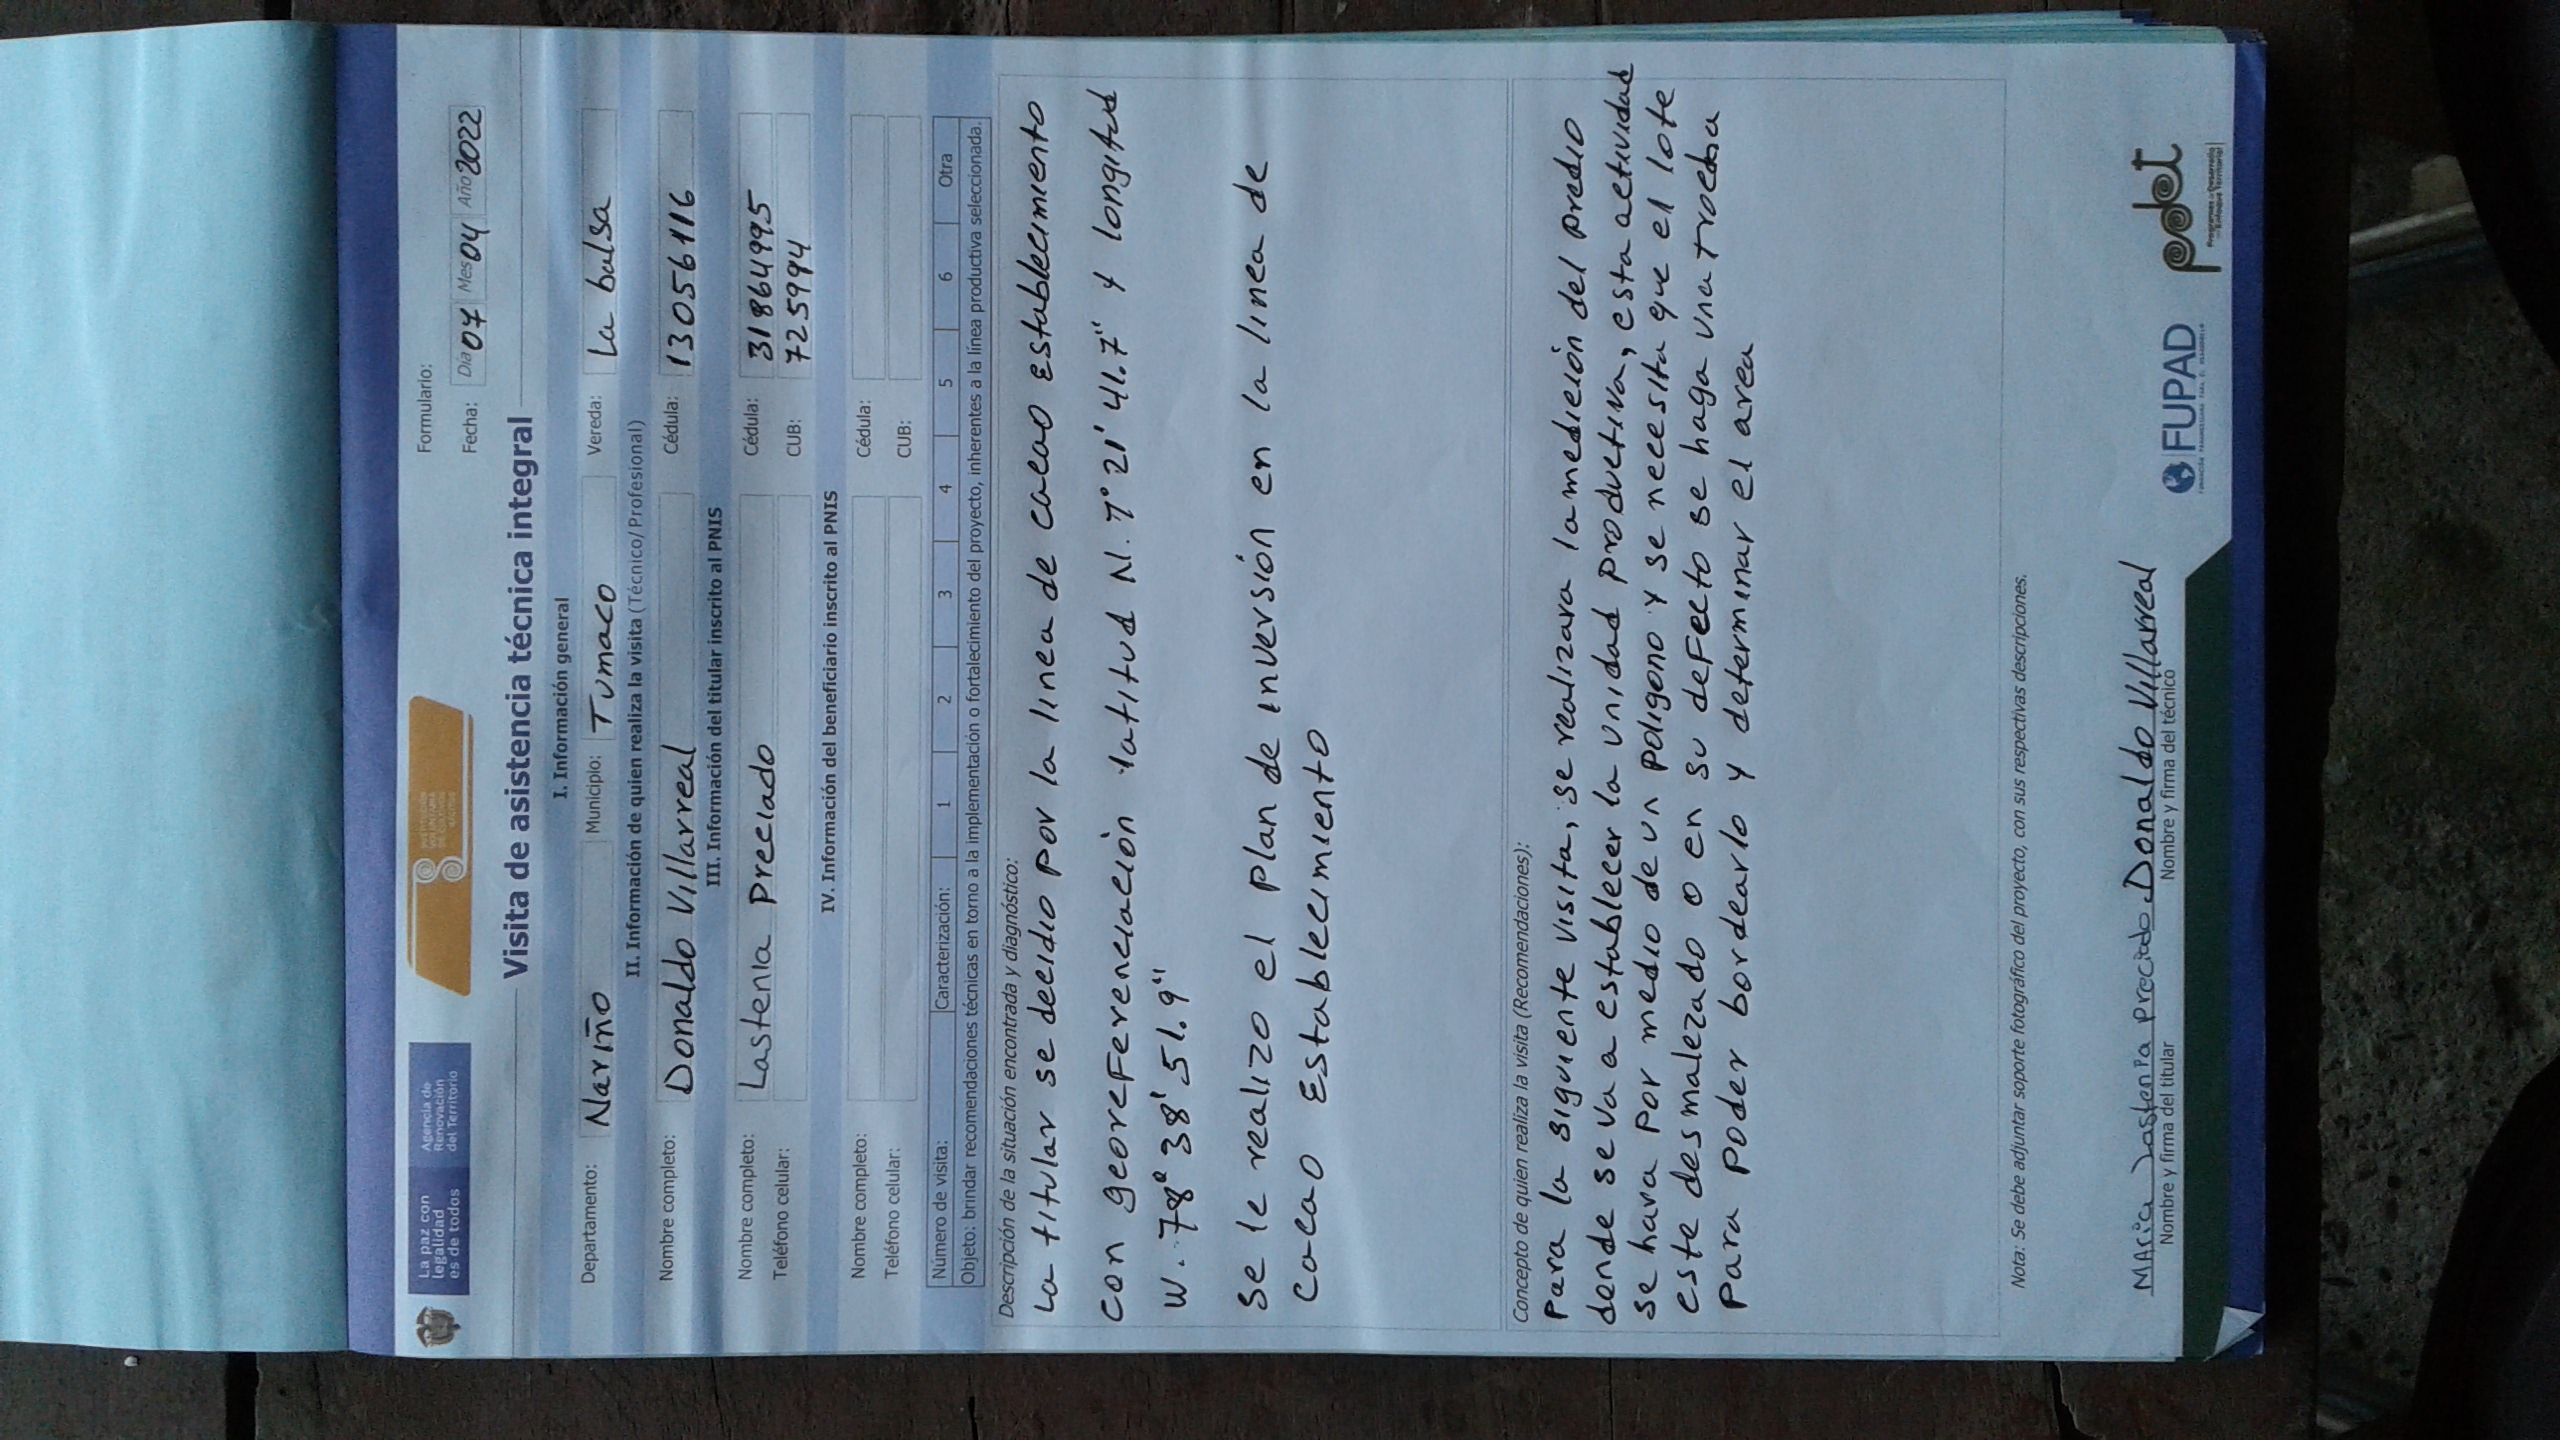 La paz con
legalidad
es de todos
Agencia de
Renovación
del Territorio
Formulario:
Fecha: Día 07 Mes 04 Año 2022
Visita de asistencia técnica integral
I. Información general
Departamento: Nariño Municipio: Tumaco Vereda: La balsa
II. Información de quien realiza la visita (Técnico/ Profesional)
Nombre completo: Donaldo Villarreal Cédula: 13056116
III. Información del titular inscrito al PNIS
Nombre completo: Lastenia Preciado Cédula: 318649995
Teléfono celular: CUB: 725994
IV. Información del beneficiario inscrito al PNIS
Nombre completo: Cédula:
Teléfono celular: CUB:
Número de visita: Caracterización: 1 2 3 4 5 6 Otra
Objeto: brindar recomendaciones técnicas en torno a la implementación o fortalecimiento del proyecto, inherentes a la línea productiva seleccionada.
Descripción de la situación encontrada y diagnóstico:
La titular se decidio por la linea de cacao establecimiento
con georeferenciación latitud N. 1° 21' 41.7" y longitud
W. 78° 38' 51.9"
Se le realizo el plan de inversión en la linea de
cacao establecimiento
Concepto de quien realiza la visita (Recomendaciones):
Para la siguiente visita, se realizara la medición del predio
donde se va a establecer la unidad productiva, esta actividad
se hara por medio de un poligono y se necesita que el lote
este desmalezado o en su defecto se haga una trocha
para poder bordearlo y determinar el area
Nota: Se debe adjuntar soporte fotográfico del proyecto, con sus respectivas descripciones.
MAria Lastenia Preciado Donaldo Villarreal
Nombre y firma del titular Nombre y firma del técnico
FUPAD
pdet
Programas de Desarrollo
con Enfoque Territorial